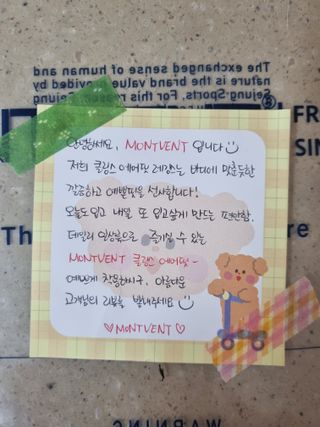 The exchanged sense of human and
nature is the brand value provided by
Sejung Sports. For this reason
안녕하세요, MONTVENT 입니다
저희 클링스 에어핏 레깅스는 바디에 맞춘듯한
깔끔하고 예쁜핏을 선사합니다!
오늘도 입고 내일 또 입고싶게 만드는 편안함.
데일리 일상룩으로 즐기실 수 있는
MONTVENT 클링스 에어핏~
예쁘게 착용하시구, 아름다운
고객님의 리뷰를 보내주세요
♡MONTVENT♡
FR
SIN
Th
WARNING